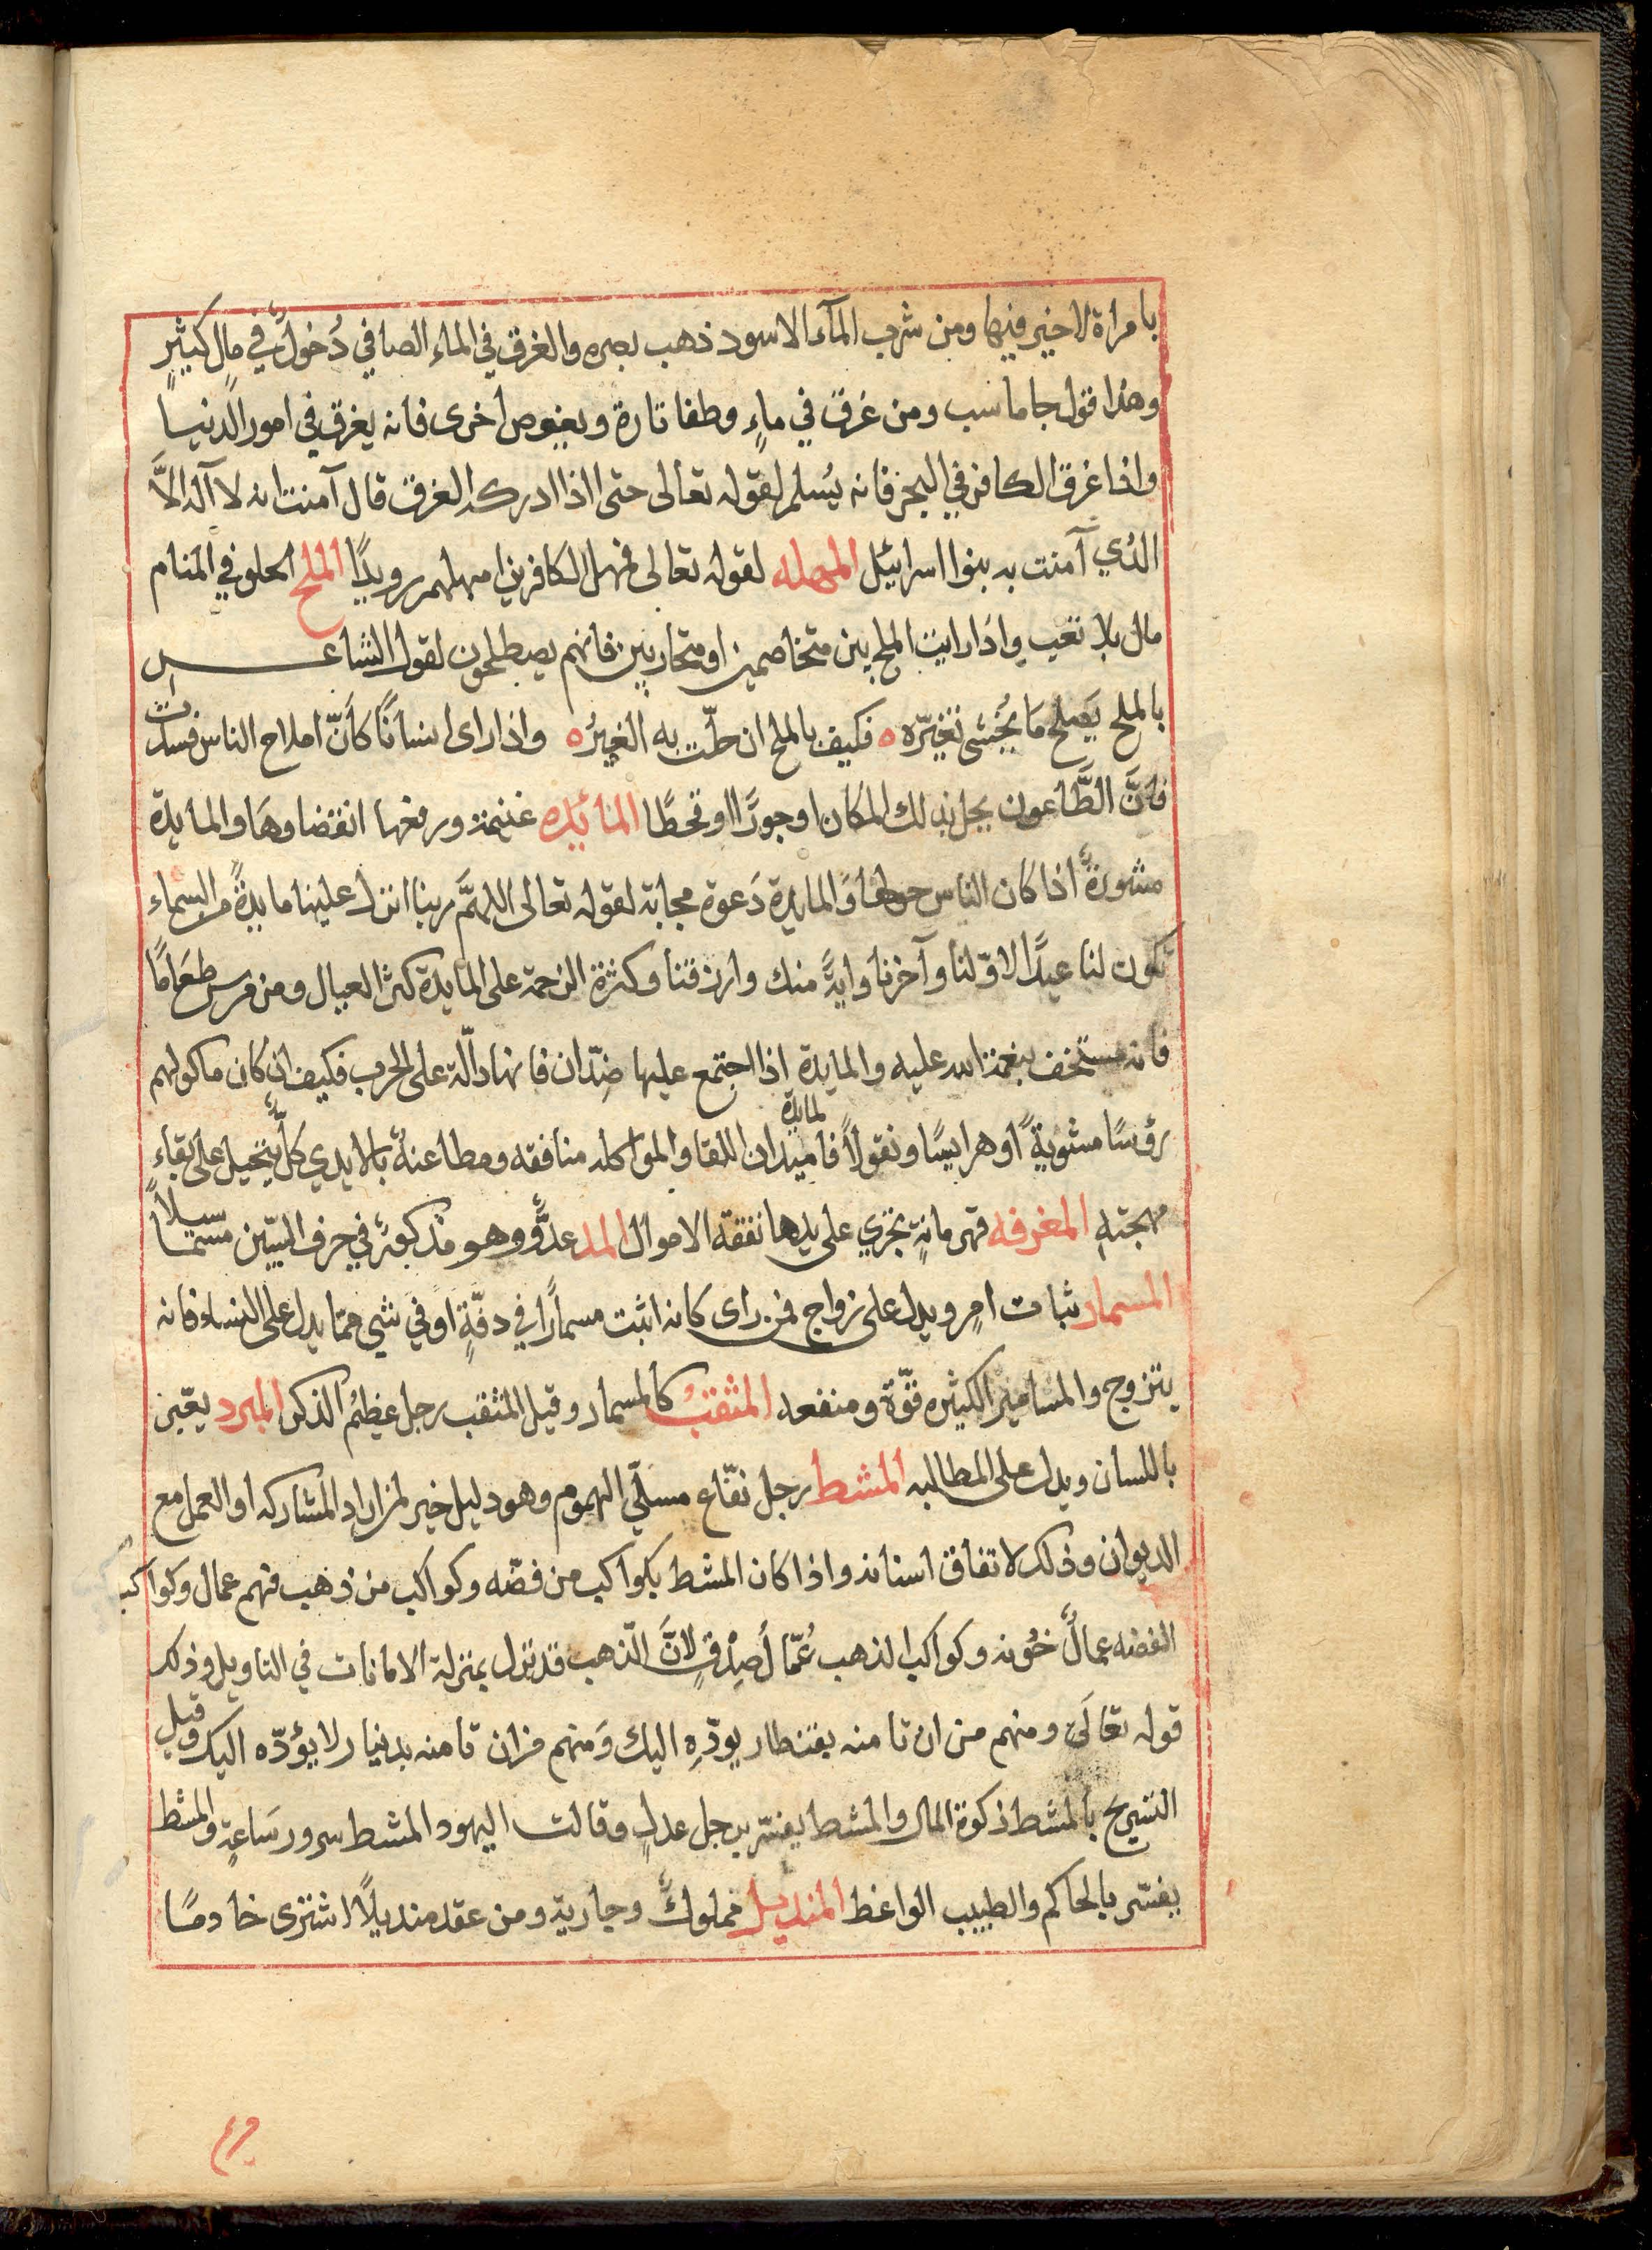 بامراة لاخير فيها ومن شرب المآء الاسود ذهب بصره والغرق في الماء الصافي دُخولٌ في مالٍ كثيرٍ
وهذا قول جاماسب ومن غرق في ماءٍ وطفا تارة ويغوص اخرى فانه يغرق في امور الدنيا
واذا غرق الكافر في البحر فانه يُسلم لقوله تعالى حتى اذا ادركه الغرق قال آمنت انه لا آله الاَّ
الذي آمنت به بنوا اسرائيل المهمله لقوله تعالى فمهل الكافرين امهلهم رويدًا الملح الحلو في المنام
مال بلا تعب واذا رايت الملح بين متخاصمين او متحاربين فانهم يصطلحون لقول الشاعر
بالملح يَصلح مَا يُخشى تغيّره ه فكيف بالملح ان حلّت به الغِيرُ ه واذا راى انسانًا كاَنّ املاح الناس فسدت
فانَّ الطَّاعون يحل بذلك المكان او جورًا او قحطًا المائده غنيمة ورفعها انقضاوها والمايدة
مشورةٌ اذا كان الناس حولها وَالمايدة دَعوة مجابة لقوله تعالى اللهمَّ ربنا انزل علينا مايدةً من السماء
تكون لنا عيدًا لاوّلنا وآخرنا وايةً منك وارزقنا وكثرة الزحمة على المايدة كثر العيال ومن مرس طعَامًا
فانه مستخف بنعمة الله عليه والمايدة اذا اجتمع عليها ضِدّان فانها دالّة على الحرب فكيف ان كان ماكولهم
رؤسًا مشويةً او هرايسًا وبقولاً فالمايدة ميدان اللقا والمواكله منافقه ومطاعنةٌ بالايدي كلٌّ يتحيل على بقاء
مهجتهِ المغرفه قهرمانةٍ تجري على يدها نفقة الاموال المد عدوٌّ وهو مذكورٌ في حرف السّين مسمّا سيلاً
المسمار ثبات امرٍ ويدل على زواج فمن راى كانه اثبت مسمارًا في دفّةٍ او في شي ممّا يدل على النساء فانه
يتزوج والمسامير الكثيره قوّة ومنفعه المثقبُ كالمسمار وقيل المثقب رجل عظيمُ الذكر المبرد يعبّر
باللسان ويدل على المطالبه المشط رجل نفّاع مسلّي الهموم وهو دليل خير لمن اراد المشاركه او العمل مع
الديوان وذلك لاتفاق اسنانه واذا كان المشط بكواكب من فضّه وكواكب من ذهب فهم عمال وكواكب
الفضه عمالٌ خُونه وكواكب الذهب عُمّالُ صِدْقٍ لانَّ الذهب قد تنزل بمنزلة الامانات في التاويل وذلك
قوله تعَالَى ومنهم من ان تامنه بقنطار يودّهِ اليك وَمنهم من ان تامنه بدنيار لا يؤدّه اليك وقيل
التشريح بالمشط زكوة المال والمشط يفسّر برجل عدلٍ وقالت اليهود المشط سرور سَاعةٍ والمشط
يفسّر بالحاكم والطبيب الواعظ المنديل مملوكٌ وجارية ومن عقد منديلاً اشترى خادمًا